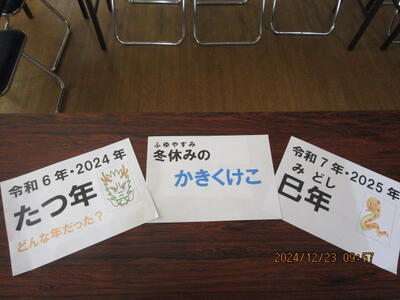 令和6年・2024年
たつ年
どんな年だった？
ふゆやすみ
冬休みの
かきくけこ
令和7年・2025年
みどし
巳年
2024/12/23 09:57